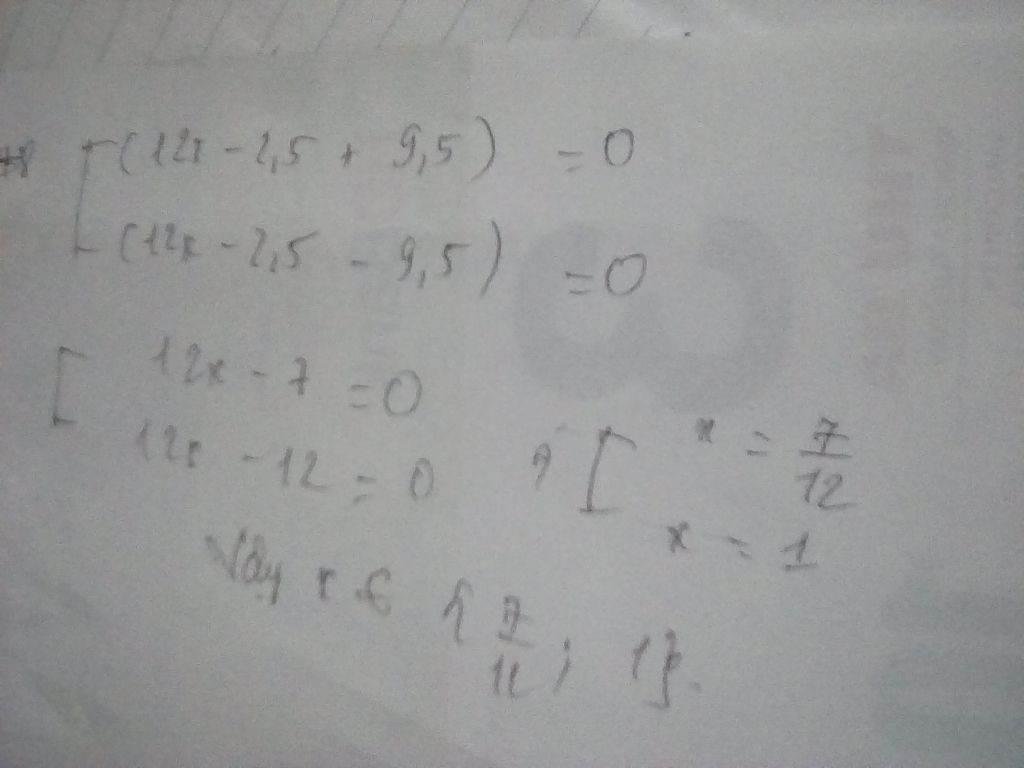 [ (12x - 2,5 + 9,5) = 0
(12x - 2,5 - 9,5) = 0
[ 12x - 7 = 0
12x - 12 = 0
[ x = 7/12
x = 1
Vậy x ∈ { 7/12 ; 1}.